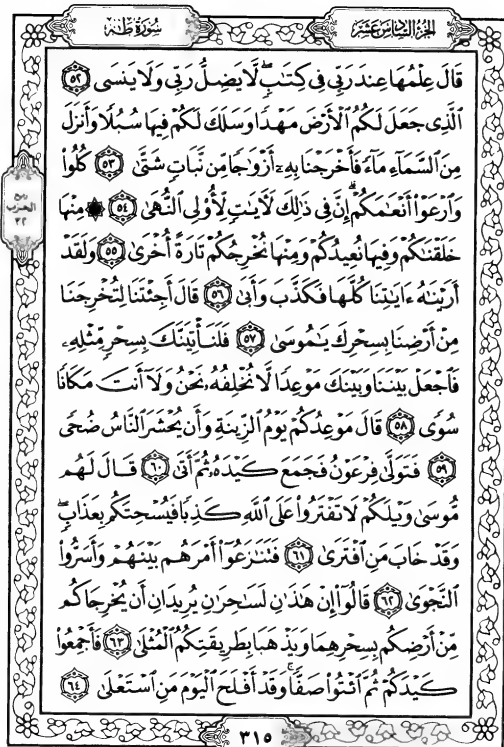 سُورَةُ طه
الجُزْءُ السَّادِسَ عَشَرَ
قَالَ عِلْمُهَا عِندَ رَبِّي فِي كِتَٰبٍۖ لَّا يَضِلُّ رَبِّي وَلَا يَنسَى ٥٢
ٱلَّذِي جَعَلَ لَكُمُ ٱلْأَرْضَ مَهْدًا وَسَلَكَ لَكُمْ فِيهَا سُبُلًا وَأَنزَلَ
مِنَ ٱلسَّمَآءِ مَآءً فَأَخْرَجْنَا بِهِۦٓ أَزْوَٰجًا مِّن نَّبَاتٍ شَتَّىٰ ٥٣ كُلُوا۟
وَٱرْعَوْا۟ أَنْعَٰمَكُمْۗ إِنَّ فِي ذَٰلِكَ لَءَايَٰتٍ لِّأُو۟لِي ٱلنُّهَىٰ ٥٤ ۞ مِنْهَا
خَلَقْنَٰكُمْ وَفِيهَا نُعِيدُكُمْ وَمِنْهَا نُخْرِجُكُمْ تَارَةً أُخْرَىٰ ٥٥ وَلَقَدْ
أَرَيْنَٰهُ ءَايَٰتِنَا كُلَّهَا فَكَذَّبَ وَأَبَىٰ ٥٦ قَالَ أَجِئْتَنَا لِتُخْرِجَنَا
مِنْ أَرْضِنَا بِسِحْرِكَ يَٰمُوسَىٰ ٥٧ فَلَنَأْتِيَنَّكَ بِسِحْرٍ مِّثْلِهِۦ
فَٱجْعَلْ بَيْنَنَا وَبَيْنَكَ مَوْعِدًا لَّا نُخْلِفُهُۥ نَحْنُ وَلَآ أَنتَ مَكَانًا
سُوًى ٥٨ قَالَ مَوْعِدُكُمْ يَوْمُ ٱلزِّينَةِ وَأَن يُحْشَرَ ٱلنَّاسُ ضُحًى
٥٩ فَتَوَلَّىٰ فِرْعَوْنُ فَجَمَعَ كَيْدَهُۥ ثُمَّ أَتَىٰ ٦٠ قَالَ لَهُم
مُّوسَىٰ وَيْلَكُمْ لَا تَفْتَرُوا۟ عَلَى ٱللَّهِ كَذِبًا فَيُسْحِتَكُم بِعَذَابٍۖ
وَقَدْ خَابَ مَنِ ٱفْتَرَىٰ ٦١ فَتَنَٰزَعُوٓا۟ أَمْرَهُم بَيْنَهُمْ وَأَسَرُّوا۟
ٱلنَّجْوَىٰ ٦٢ قَالُوٓا۟ إِنْ هَٰذَٰنِ لَسَٰحِرَٰنِ يُرِيدَانِ أَن يُخْرِجَاكُم
مِّنْ أَرْضِكُم بِسِحْرِهِمَا وَيَذْهَبَا بِطَرِيقَتِكُمُ ٱلْمُثْلَىٰ ٦٣ فَأَجْمِعُوا۟
كَيْدَكُمْ ثُمَّ ٱئْتُوا۟ صَفًّاۚ وَقَدْ أَفْلَحَ ٱلْيَوْمَ مَنِ ٱسْتَعْلَىٰ ٦٤
ربع
الحزب
٣٢
٣١٥